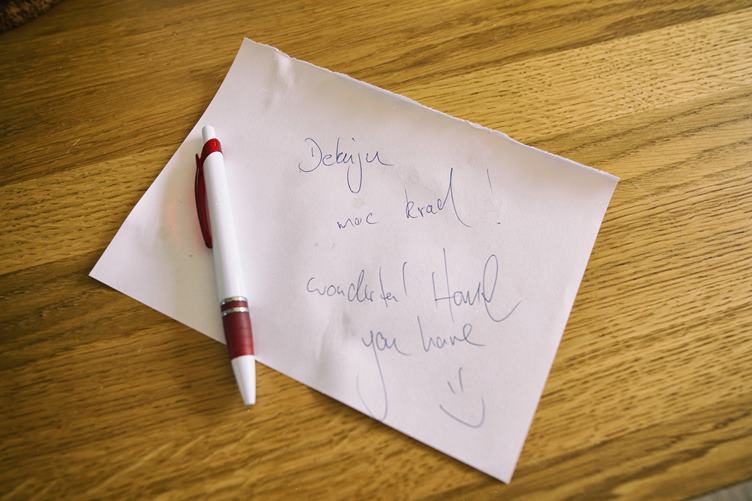 Dekuju
moc krad!
wonderful Hotel
you have
:)